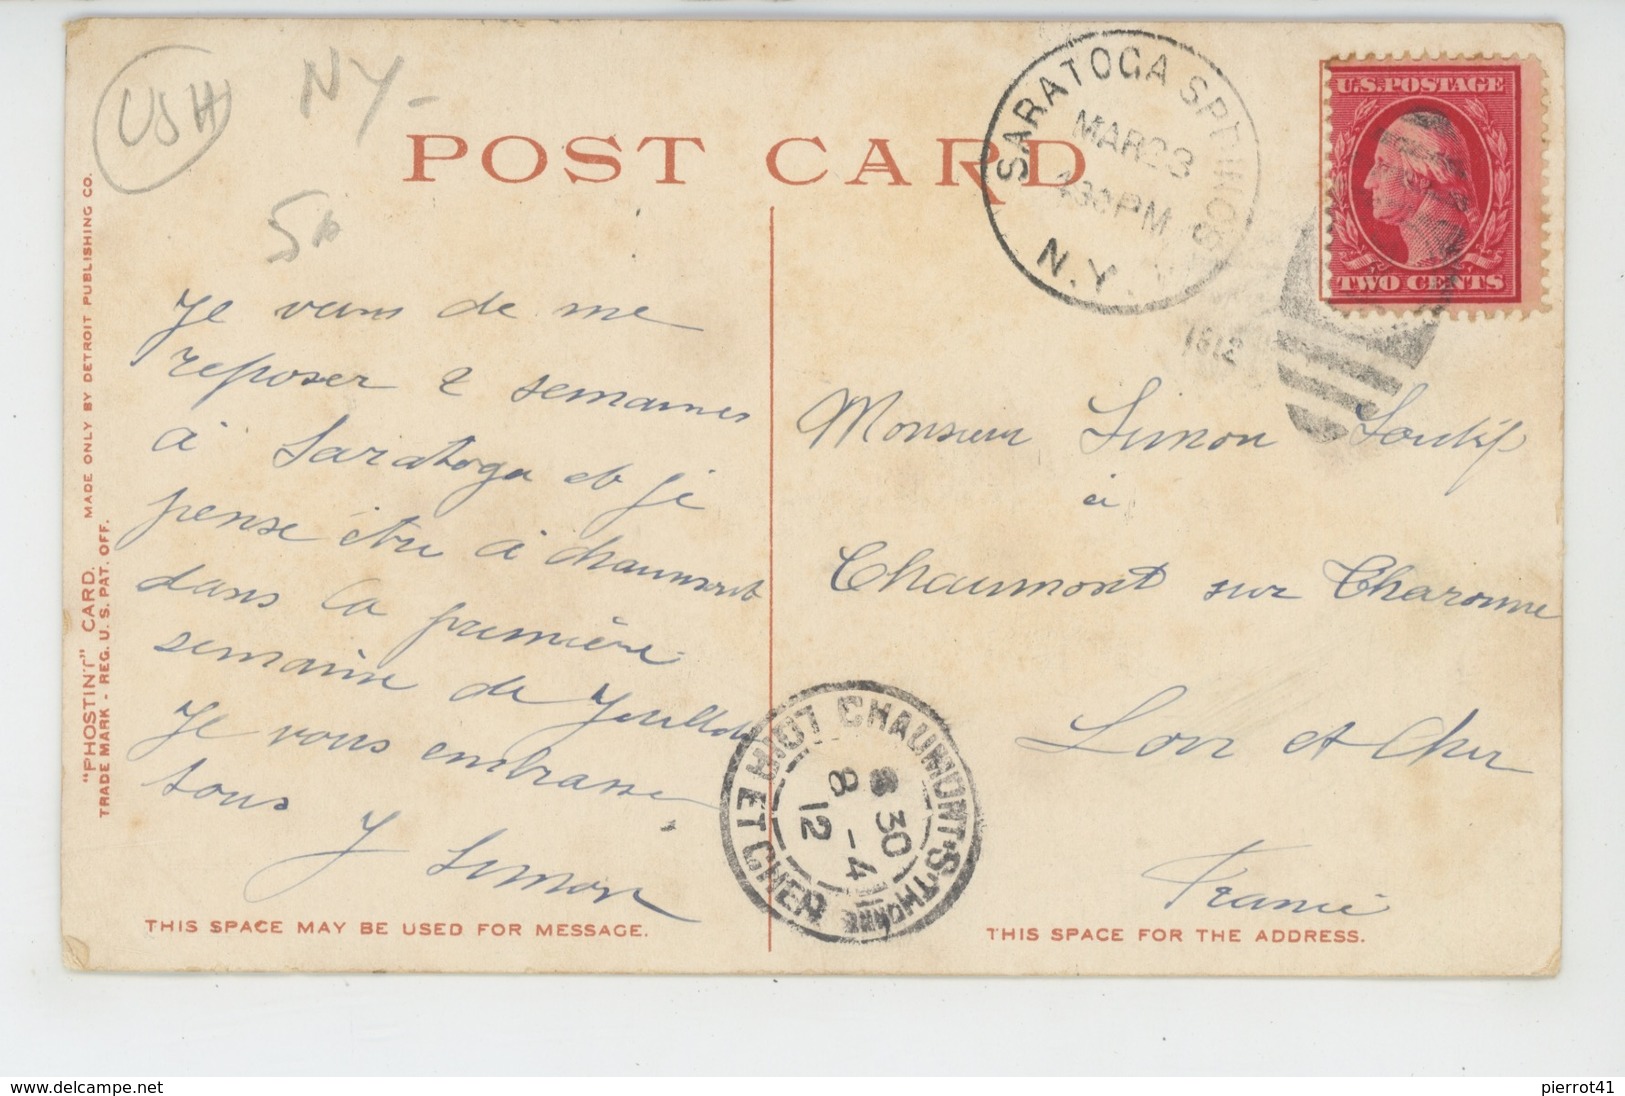 USH
NY-
POST CARD
SARATOGA SPRINGS
MAR 23
430 PM
N.Y.
1912
U.S. POSTAGE
TWO CENTS
50
"PHOSTINT" CARD. MADE ONLY BY DETROIT PUBLISHING CO.
TRADE MARK - REG. U. S. PAT. OFF.
Je viens de me
reposer 2 semaines
à Saratoga et je
pense être à Chaumont
dans la première
semaine de Juillet
Je vous embrasse
tous
J Simon
Monsieur Simon
à
Chaumont sur Tharonne
Loir et Cher
France
CHAUMONT-S-THARONNE
LOIR ET CHER
8 30
8 - 4
12
THIS SPACE MAY BE USED FOR MESSAGE.
THIS SPACE FOR THE ADDRESS.
pierrot41